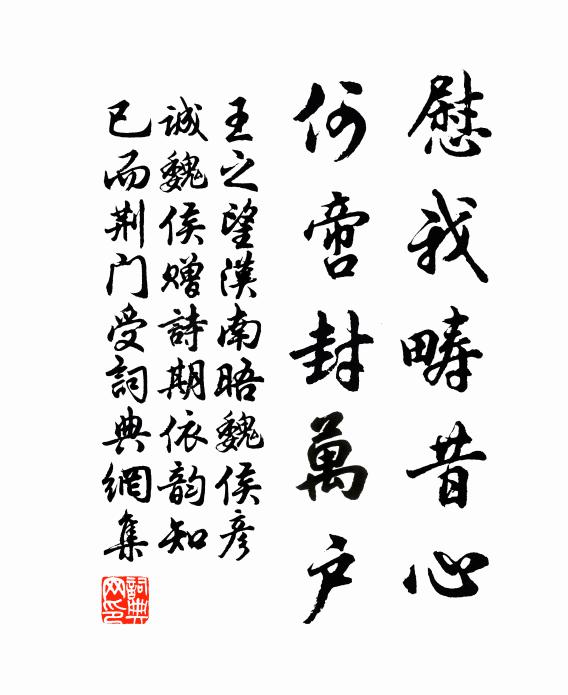 慰我疇昔心
何啻封萬户
王之望漢南晤魏侯彦
誠魏侯贈詩期依韵知
已而荆门受詞典網集
詞典網印